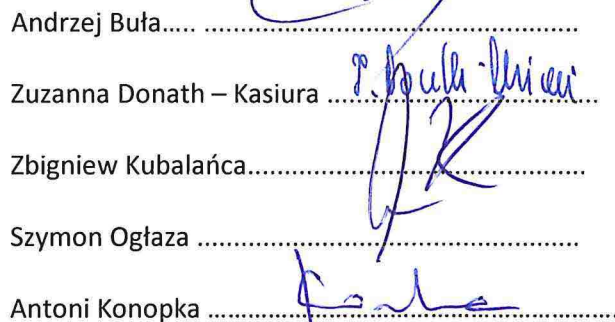 Andrzej Buła..... ............................................................
Zuzanna Donath – Kasiura ...........................................
Zbigniew Kubalańca......................................................
Szymon Ogłaza .............................................................
Antoni Konopka ................................................................